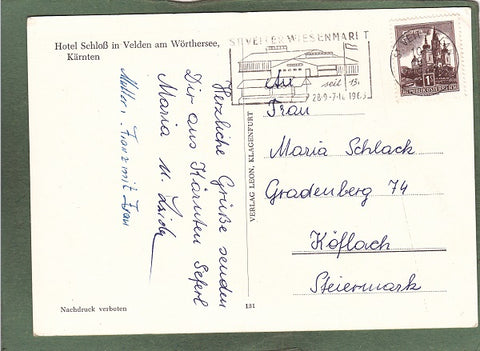 Hotel Schloß in Velden am Wörthersee,
Kärnten
Herzliche Grüße senden
Dir aus Kärnten Seferl
Maria u.
Franz mit Frau
Nachdruck verboten
131
VERLAG LEON, KLAGENFURT
ST. VEITER WIESENMARKT
seit
28.9.-7.10.
REPUBLIK ÖSTERREICH
An
Frau
Maria Schlack
Gradenberg 74
Köflach
Steiermark